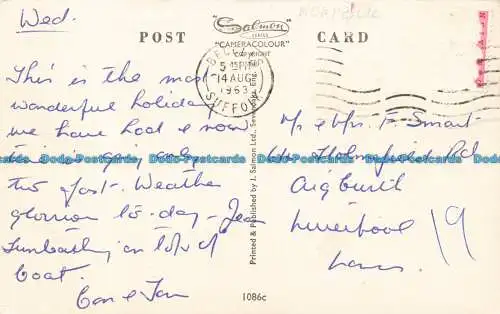 Wed.
POST CARD
Salmon
SERIES
"CAMERACOLOUR"
Copyright
BECCLES
5 15 PM
14 AUG
1963
SUFFOLK
This is the most
wonderful holiday
we have had & now
time is going only
too fast. Weather
glorious to-day - Jean
Sunbathing on top of
boat.
Con & Ian
Mr & Mrs F Smart
Holmefield Rd
Aigburth
Liverpool 19
Lancs.
Printed & Published by J. Salmon Ltd., Sevenoaks, Eng.
1086c
Dodo-Postcards Dodo-Postcards Dodo-Postcards Dodo-Postcards Dodo-Postcards